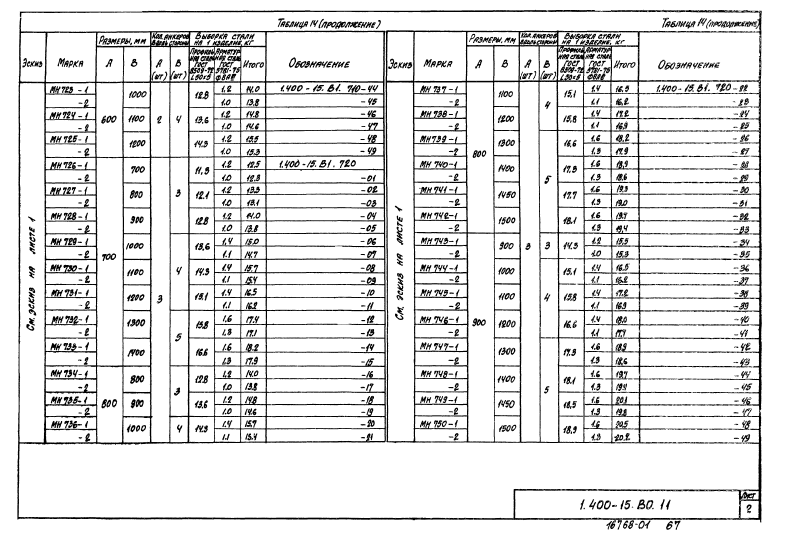 Таблица 14 (продолжение)
Эскиз Марка Размеры, мм Кол. анкеров вдоль стороны Выборка стали на 1 изделие, кг Обозначение
А В А (шт) В (шт) Итого
См. эскиз на листе 1
МН 723-1 600 1000 2 4 12.8 1.2 14.0 1.400-15.В1. 710-44
-2 1.0 13.8 -45
МН 724-1 1100 13.6 1.2 14.8 -46
-2 1.0 14.6 -47
МН 725-1 1200 14.3 1.2 15.5 -48
-2 1.0 15.3 -49
МН 726-1 700 700 3 3 11.3 1.2 12.5 1.400-15.В1. 720
-2 1.0 12.3 -01
МН 727-1 800 12.1 1.2 13.3 -02
-2 1.0 13.1 -03
МН 728-1 900 12.8 1.2 14.0 -04
-2 1.0 13.8 -05
МН 729-1 1000 4 13.6 1.4 15.0 -06
-2 1.1 14.7 -07
МН 730-1 1100 14.3 1.4 15.7 -08
-2 1.1 15.4 -09
МН 731-1 1200 15.1 1.4 16.5 -10
-2 1.1 16.2 -11
МН 732-1 1300 5 15.8 1.6 17.4 -12
-2 1.3 17.1 -13
МН 733-1 1400 16.6 1.6 18.2 -14
-2 1.3 17.9 -15
МН 734-1 800 800 3 12.8 1.2 14.0 -16
-2 1.0 13.8 -17
МН 735-1 900 13.6 1.2 14.8 -18
-2 1.0 14.6 -19
МН 736-1 1000 4 14.3 1.4 15.7 -20
-2 1.1 15.4 -21
Таблица 14 (продолжение)
Эскиз Марка Размеры, мм Кол. анкеров вдоль стороны Выборка стали на 1 изделие, кг Обозначение
А В А (шт) В (шт) Итого
См. эскиз на листе 1
МН 737-1 800 1100 3 4 15.1 1.4 16.5 1.400-15.В1. 720-22
-2 1.1 16.2 -23
МН 738-1 1200 15.8 1.4 17.2 -24
-2 1.1 16.9 -25
МН 739-1 1300 5 16.6 1.6 18.2 -26
-2 1.3 17.9 -27
МН 740-1 1400 17.3 1.6 18.9 -28
-2 1.3 18.6 -29
МН 741-1 1450 17.7 1.6 19.3 -30
-2 1.3 19.0 -31
МН 742-1 1500 18.1 1.6 19.7 -32
-2 1.3 19.4 -33
МН 743-1 900 900 3 14.3 1.2 15.5 -34
-2 1.0 15.3 -35
МН 744-1 1000 4 15.1 1.4 16.5 -36
-2 1.1 16.2 -37
МН 745-1 1100 15.8 1.4 17.2 -38
-2 1.1 16.9 -39
МН 746-1 1200 16.6 1.4 18.0 -40
-2 1.1 17.7 -41
МН 747-1 1300 5 17.3 1.6 18.9 -42
-2 1.3 18.6 -43
МН 748-1 1400 18.1 1.6 19.7 -44
-2 1.3 19.4 -45
МН 749-1 1450 18.5 1.6 20.1 -46
-2 1.3 19.8 -47
МН 750-1 1500 18.9 1.6 20.5 -48
-2 1.3 20.2 -49
1.400-15. В0. 11
Лист
2
16768-01 67